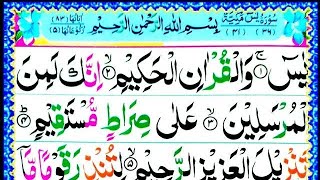 سُوْرَةُ يٰسٓ مَكِّيَّةٌ
بِسْمِ اللّٰهِ الرَّحْمٰنِ الرَّحِيْمِ
يٰسٓ ۚ﴿۱﴾ وَالْقُرْاٰنِ الْحَكِيْمِ ﴿۲﴾ اِنَّكَ لَمِنَ
الْمُرْسَلِيْنَ ﴿۳﴾ عَلٰى صِرَاطٍ مُّسْتَقِيْمٍ ﴿۴﴾
تَنْزِيْلَ الْعَزِيْزِ الرَّحِيْمِ ﴿۵﴾ لِتُنْذِرَ قَوْمًا مَّاۤ